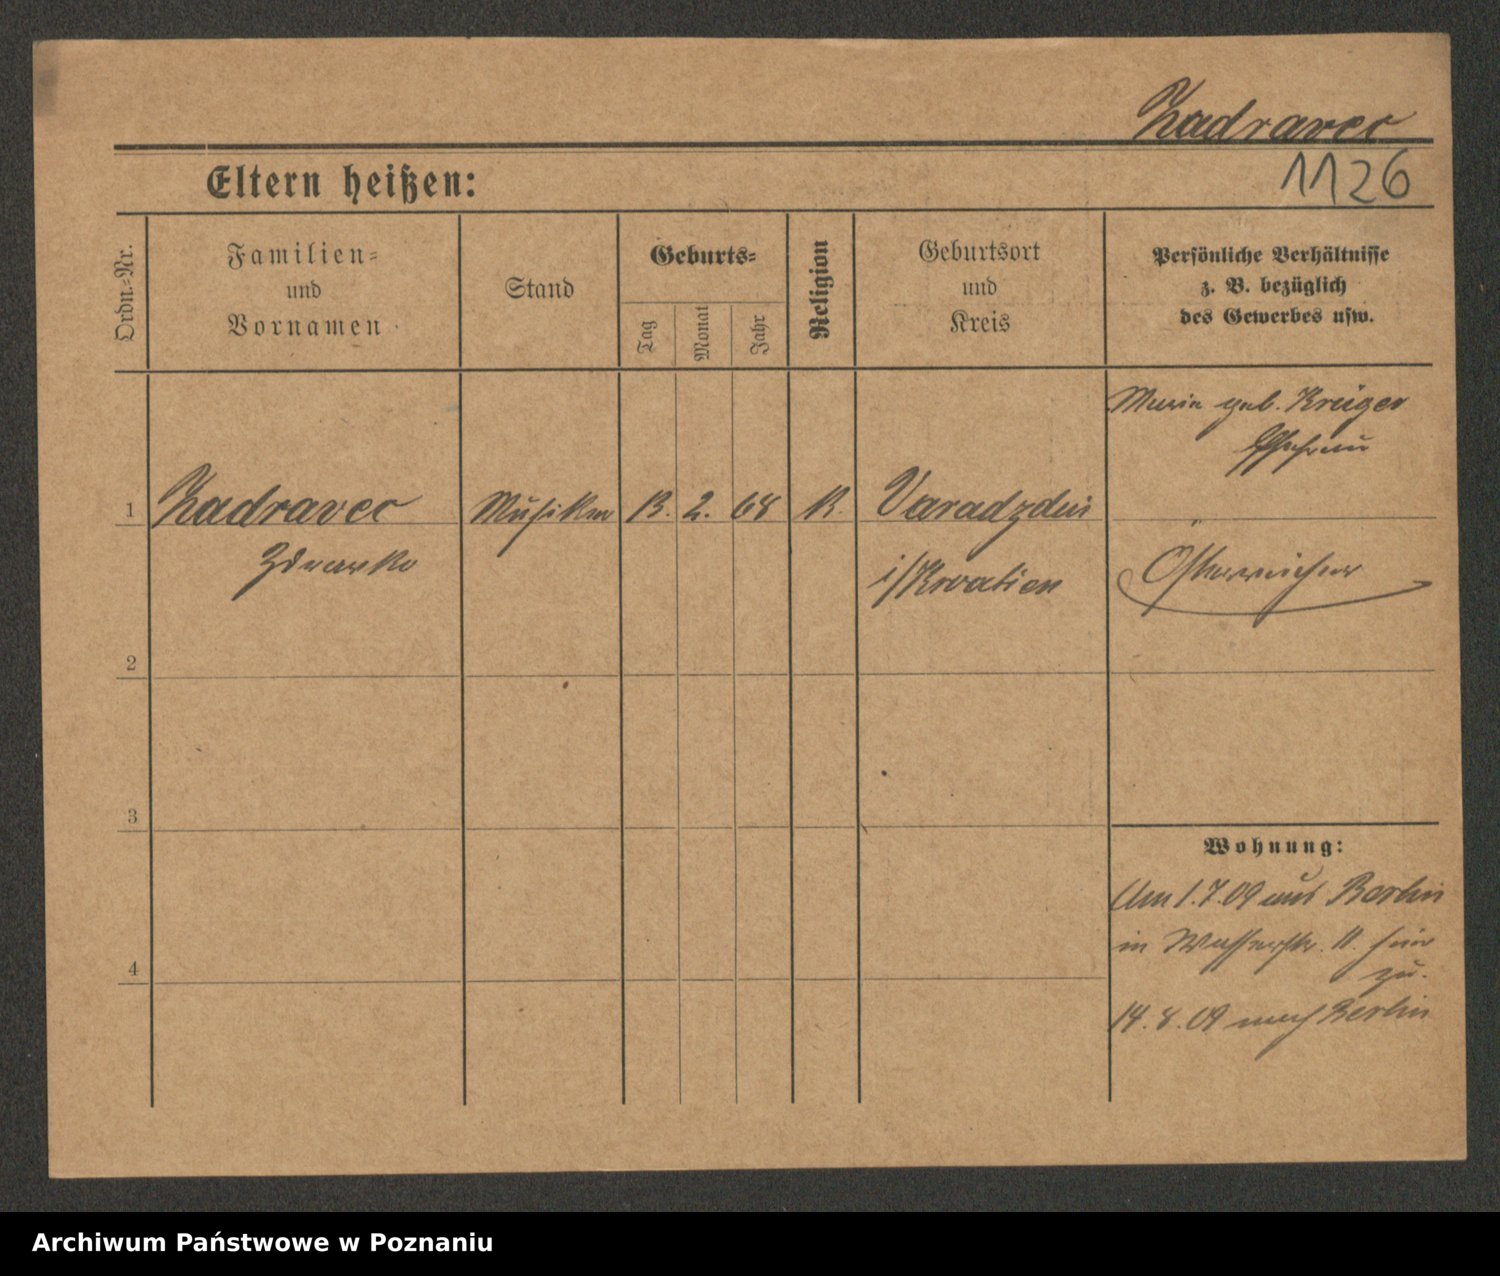 Zadravec
1126
Eltern heißen:
Ordn.-Nr.
Familien-
und
Vornamen
Stand
Geburts-
Tag
Monat
Jahr
Religion
Geburtsort
und
Kreis
Persönliche Verhältnisse
z. B. bezüglich
des Gewerbes usw.
geb. Krüger
Ehefrau
1 Zadravec Musiker 13. 2. 68 K. Varadzdin
Zdravko i/Kroatien Österreicher
2
3
Wohnung:
Am 1.7.09 aus Berlin
in Wasserstr. 11. hier
zu.
4
14.8.09 nach Berlin
Archiwum Państwowe w Poznaniu